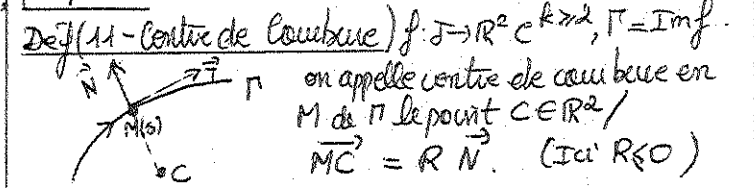 Def (11 - Centre de Courbure) f: J→ℝ² C^{k≥2}, Γ = Im f.
on appelle centre de courbure en
M de Γ le point C∈ℝ² /
\vec{MC} = R \vec{N}. (Ici R≤0)
\vec{N} \vec{T} Γ
M(s)
C